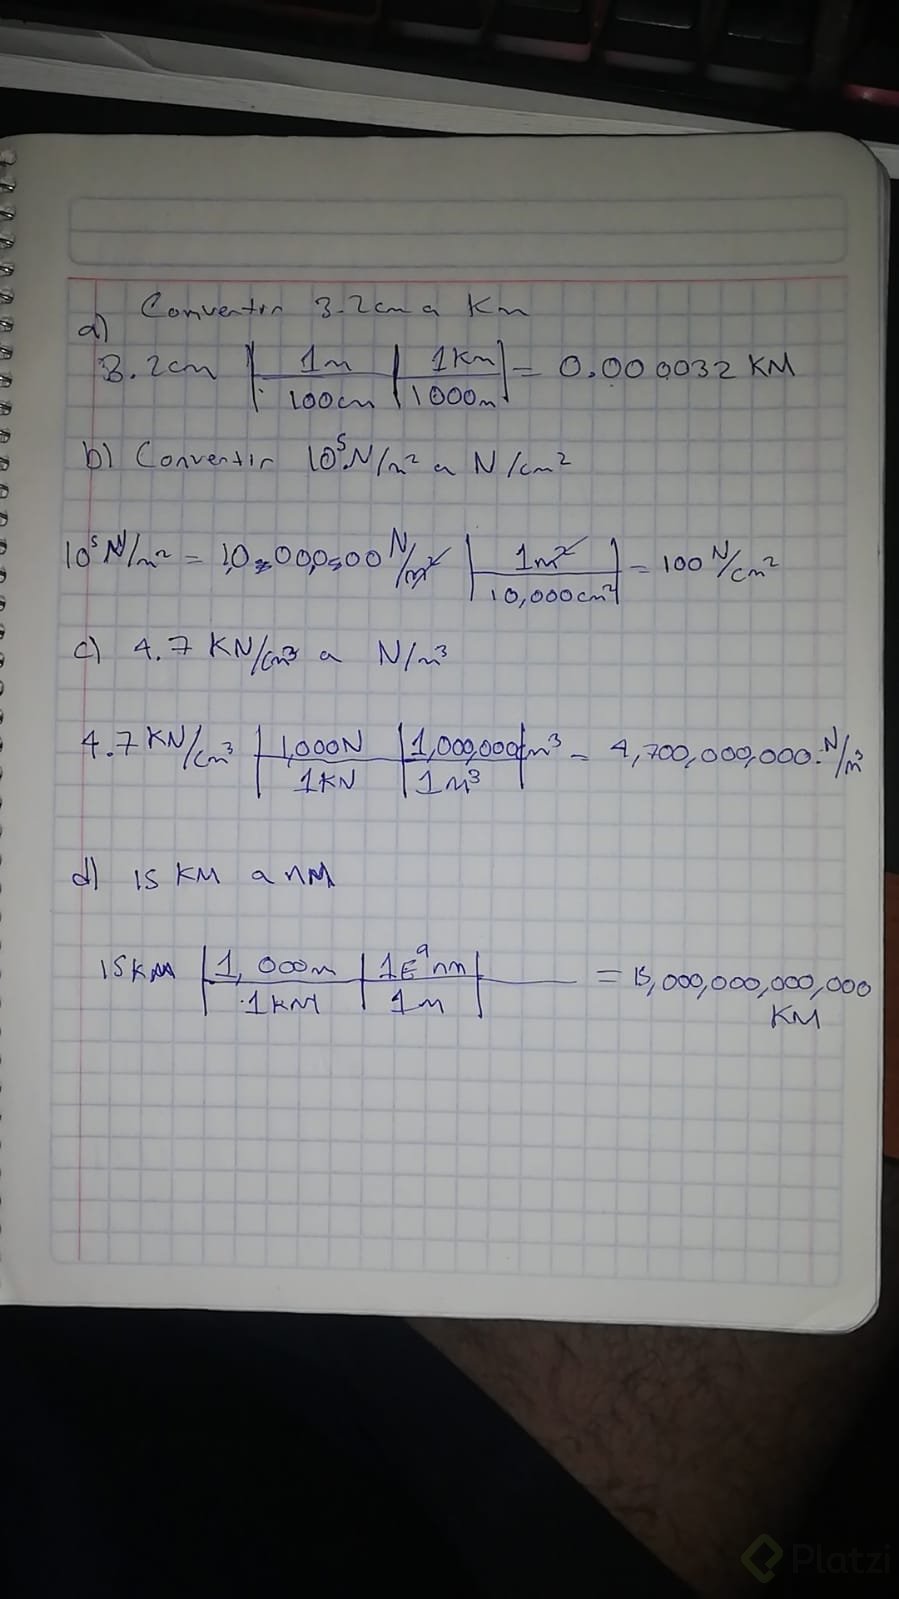 a) Convertir 3.2cm a Km
3.2cm | 1m / 100cm | 1Km / 1000m | = 0.000032 KM
b) Convertir 10⁵N/m² a N/cm²
10⁵ N/m² = N/m² | 1m² / 10,000cm² | = 100 N/cm²
c) 4.7 KN/cm³ a N/m³
4.7 KN/cm³ | 1,000N / 1KN | 1,000,000cm³ / 1M³ | = 4,700,000,000 N/m³
d) 15 KM a nM
15KM | 1,000m / 1KM | 1E⁹nm / 1M | = 15,000,000,000,000
KM
Platzi